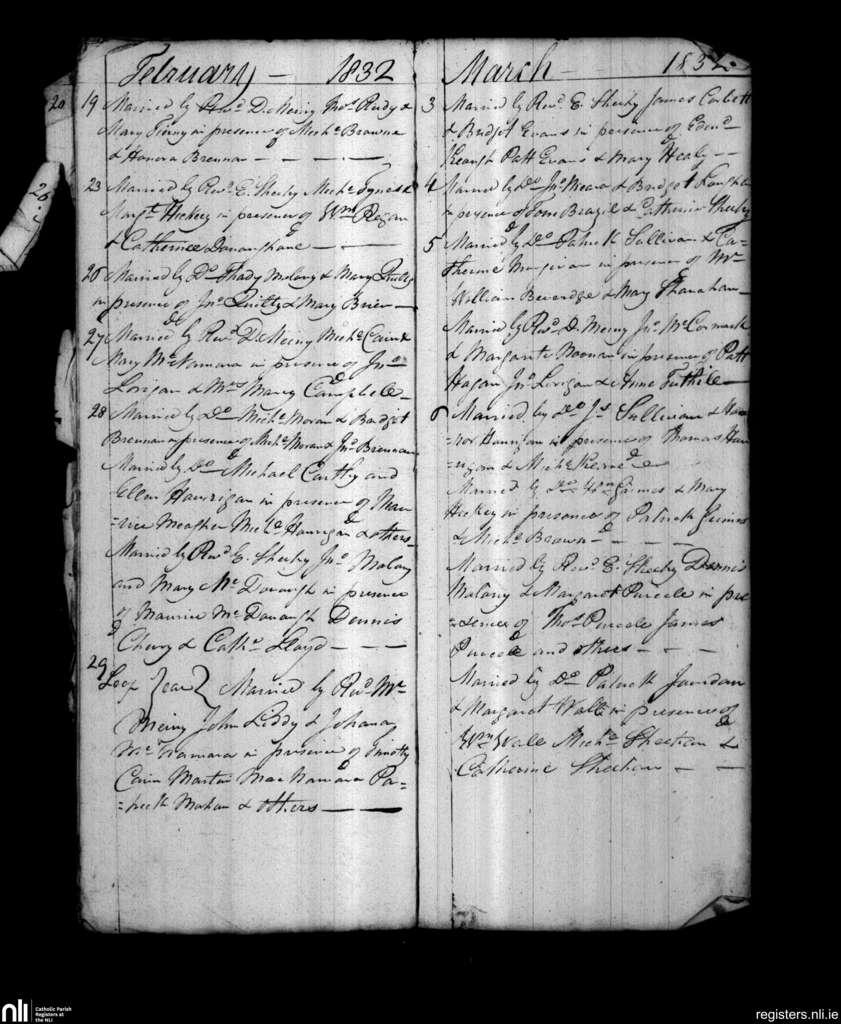 February — 1832
19 Married by Revd. D. Meiny Thos. Ruddy &
Mary in presence of Michl. Browne
& Honora Brennan — — —
23 Married by Revd. E. Sheehy Michl. &
Margt. Hickey in presence of Wm. Regan
& Catherine — —
26 Married by Do. Thady Molony & Mary Quilty
in presence of Jno. Quilty & Mary Brien —
27 Married by Revd. D. Meiny Michl. &
Mary McNamara in presence of Jno.
Lorigan & Mrs. Mary Campbell —
28 Married by Do. Michl. Moran & Bridget
Brennan in presence of Michl. Moran & Jno. Brennan
Married by Do. Michael Carthy and
Ellen Hannigan in presence of Mau
rice Meagher Michl. Hannigan & others
Married by Revd. E. Sheehy Jno. Molony
and Mary Mc Donough in presence
of Maurice Mc Donough Dennis
& Cathe. Lloyd — — —
29
Leep Year } Married by Revd. Mr
Meiny John Liddy & Johanna
McNamara in presence of Timothy
Martin MacNamara Pa=
=trick Mahon & others — —
March — 1832
3 Married by Revd. E. Sheehy James Corbett
& Bridget Evans in presence of Edmd.
Keough Patt Evans & Mary Healy — —
4 Married by Do. Jno. Meara & Bridget
in presence of Tom Brazil & Catherine Sheehy
5 Married by Do. Patrick Sullivan & Ca=
therine in presence of Mr
William Beveridge & Mary Shanahan —
Married by Revd. D. Meiny Jno. McCormack
& Margaret Noonan in presence of Patt
Hagan Jno. Lorigan & Anne Tuthill —
6 Married by Do. Js. Sullivan & Hon
=nor Hannigan in presence of Thomas Han
=nigan & Michl.
Married by Do. Wm. Grimes & Mary
Hickey in presence of Patrick Grimes
& Michl. Brown — — — —
Married by Revd. E. Sheehy Dennis
Malony & Margaret Purcele in pre
=sence of Thos. Purcele James
Purcele and others — — —
Married by Do. Patrick Jourdan
& Margaret Wall in presence of
Wm. Wale Michl. Sheehan &
Catherine Sheehan — —
20
26
nli
Catholic Parish
Registers at
the NLI
registers.nli.ie